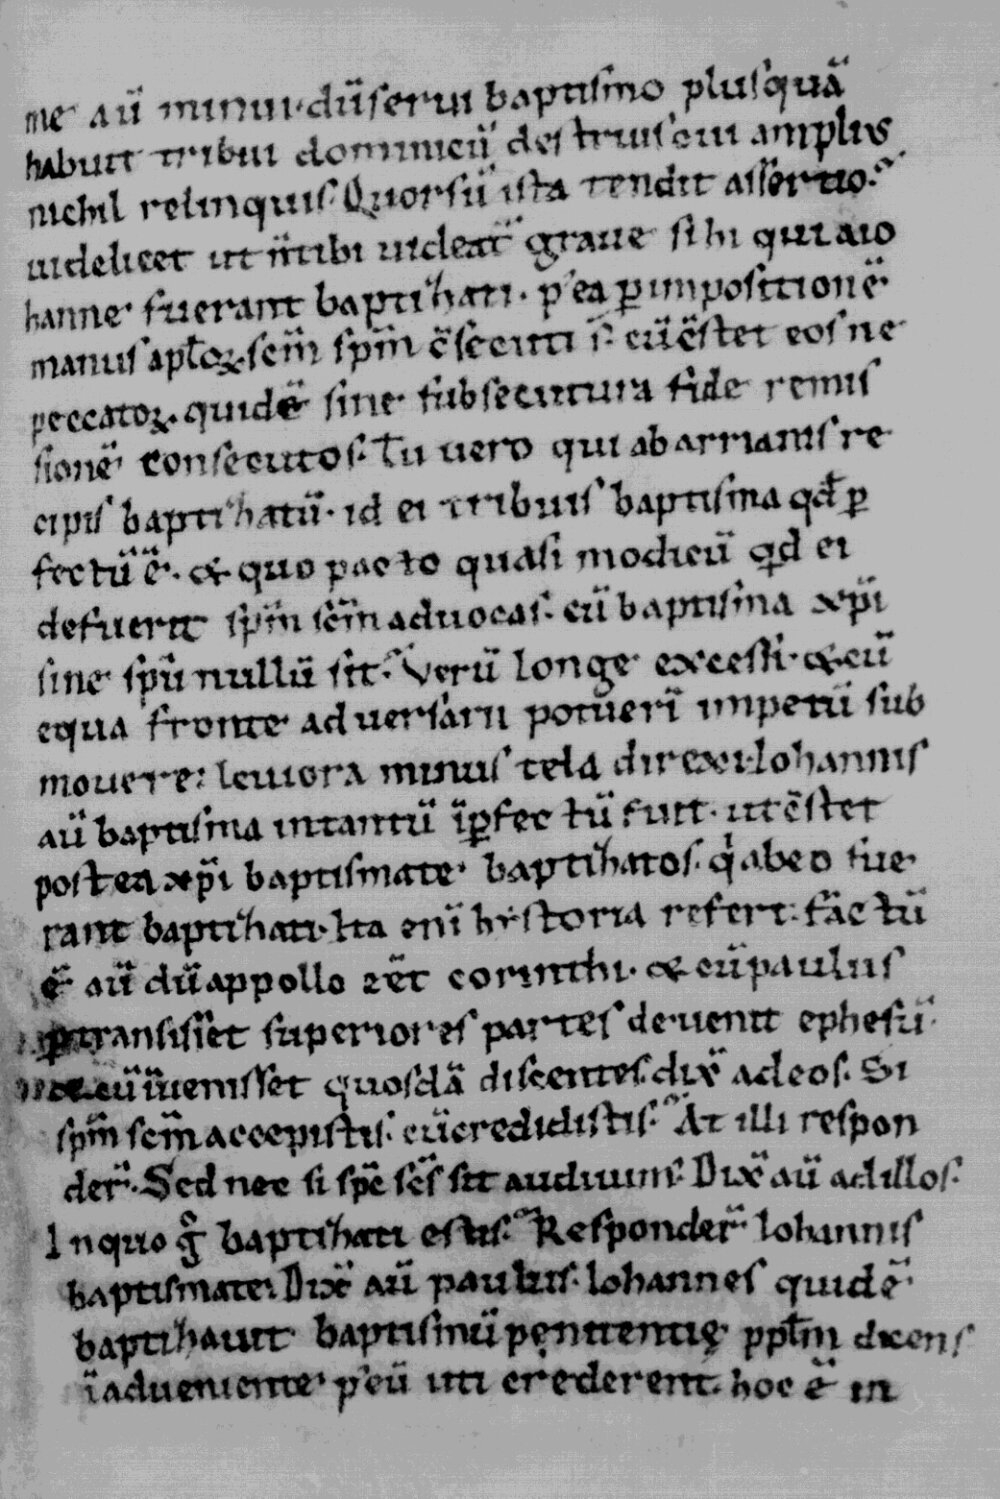 me aū minui· dū serui baptismo plusquā
habuit tribui dominicū destruis cui amplius
nichil relinquis. Quorsū ista tendit assertio?
uidelicet ut n̄ tibi uideat̄ graue si hi qui a io
hanne fuerant baptizhati· p'ea ꝑ impositionē
manus apl̄oꝝ sc̄m sp̄m c̄secuti s̄· cū c̄stet eos ne
peccatoꝝ quidē sine subsecutura fide remis
sionē consecutos. Tu uero qui ab arrianis re
cipis baptizhatū· id ei tribuis baptisma qd̄ ꝑ
fectū ē· & quo pacto quasi modicū qd ei
defuerit sp̄m sc̄m aduocas· cū baptisma xp̄i
sine sp̄u nullū sit? Verū longe excessi· & cū
equa fronte aduersarii potuerī impetū sub
mouere: leuiora minus tela direxi. Iohannis
aū baptisma intantū īꝑfectū fuit· ut c̄stet
postea xp̄i baptismate baptizhatos· q̍ ab eo fue
rant baptizhati. Ita enī hystoria refert. fāctū
ē aū dū appollo eēt corinthi· & cū paulus
ꝑtransisset superiores partes deuenit ephesū·
cū īuenisset quosdā discentes· dix̄ ad eos. Si
sp̄m sc̄m accepistis· cū credidistis? At illi respon
der̄. Sed nec si sp̄c sc̄s sit audiuim'. Dix̄ aū ad illos.
In quo g̊ baptizhati estis? Responder̄ Iohannis
baptismate. Dix̄ aū paulus· Iohannes quidē
baptizhauit baptismū pęnitentię ppl̄m dicens
ī aduenientē p' eū uti crederent· hoc ē in